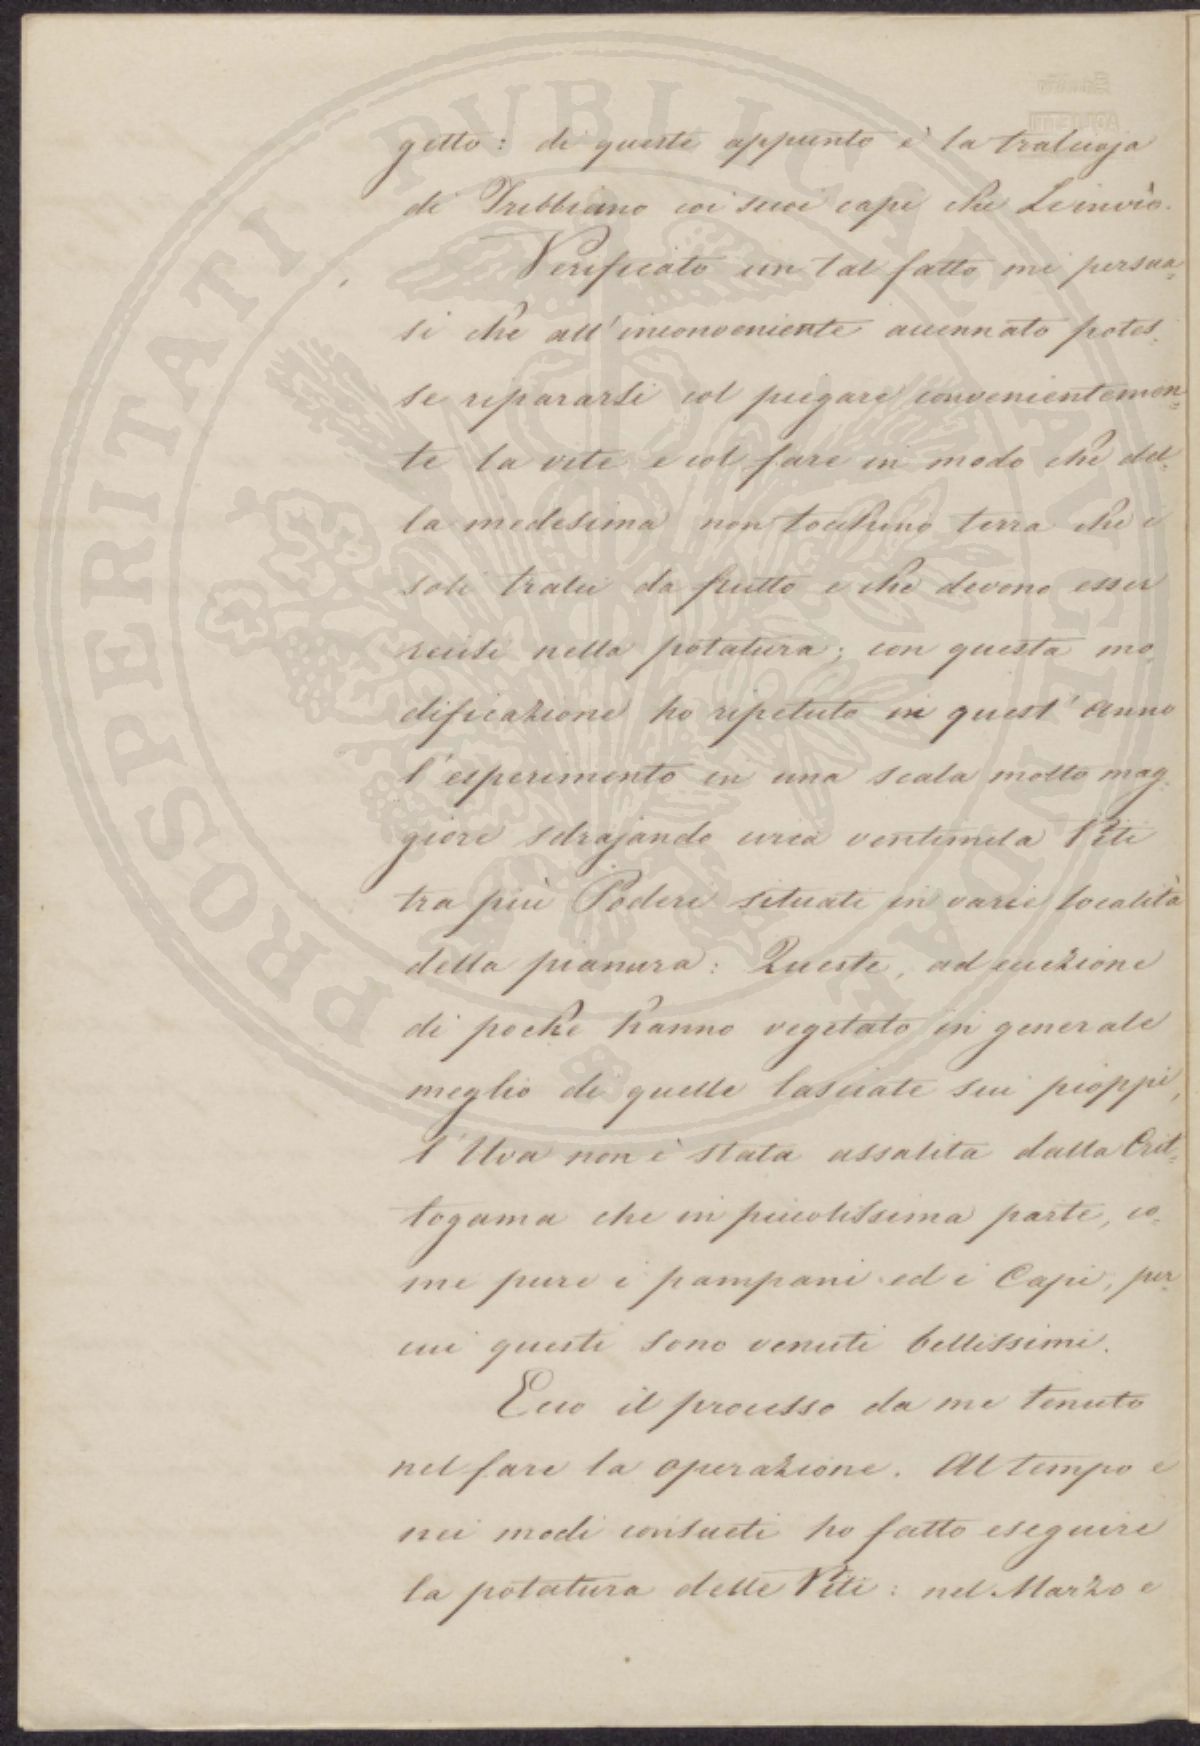 getto: di queste appunto è la tralciaja
di Trebbiano coi suoi capi che Le invio.
Verificato un tal fatto mi persua=
si che all'inconveniente accennato potes=
se ripararsi col piegare convenientemen=
te la vite e col fare in modo che del=
la medesima non tocchino terra che i
soli tralci da frutto e che devono esser
recisi nella potatura; con questa mo=
dificazione ho ripetuto in quest'anno
l'esperimento in una scala molto mag=
giore sdrajando circa ventimila Viti
tra più Poderi situati in varie località
della pianura: Queste, ad eccezione
di poche hanno vegetato in generale
meglio di quelle lasciate sui pioppi,
l'Uva non è stata assalita dalla Crit=
togama che in piccolissima parte, co=
me pure i pampani ed i Capi, per
cui questi sono venuti bellissimi.
Ecco il processo da me tenuto
nel fare la operazione. Al tempo e
nei modi consueti ho fatto eseguire
la potatura delle Viti: nel Marzo e
PROSPERITATI PUBLICAE AUGENDAE